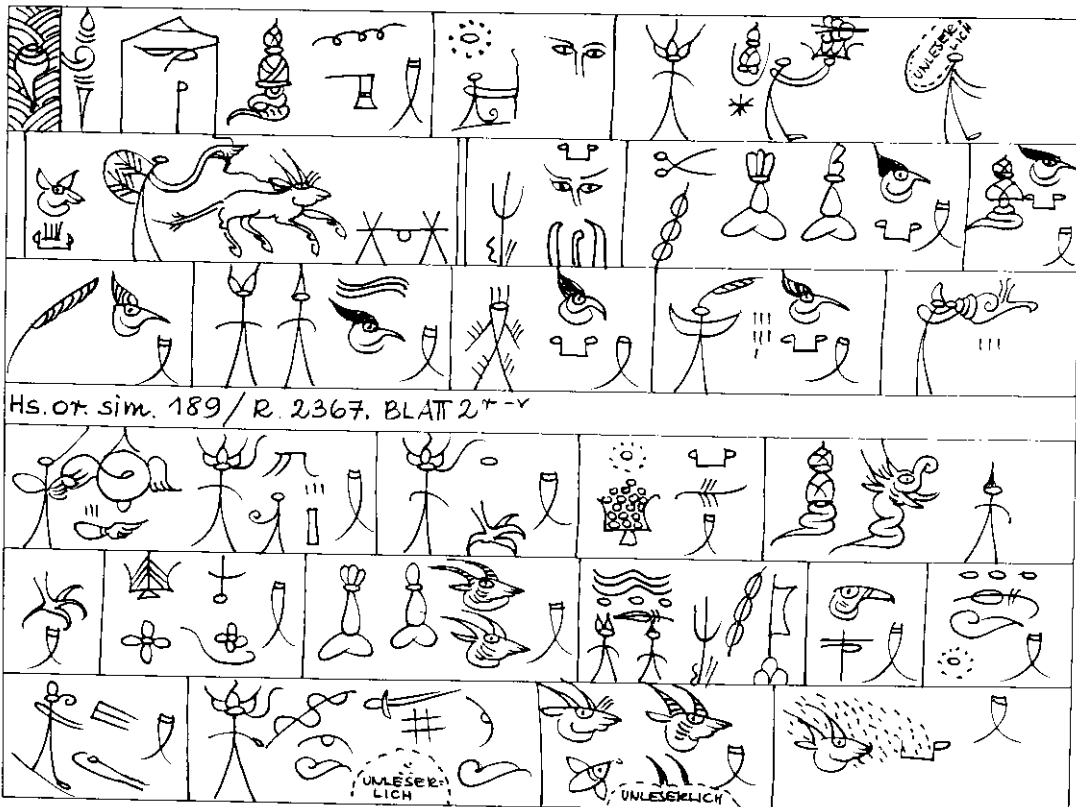 UNLESER-
LICH
Hs. or. sim. 189 / R. 2367. BLATT 2 r-v
UNLESER-
LICH
UNLESERLICH